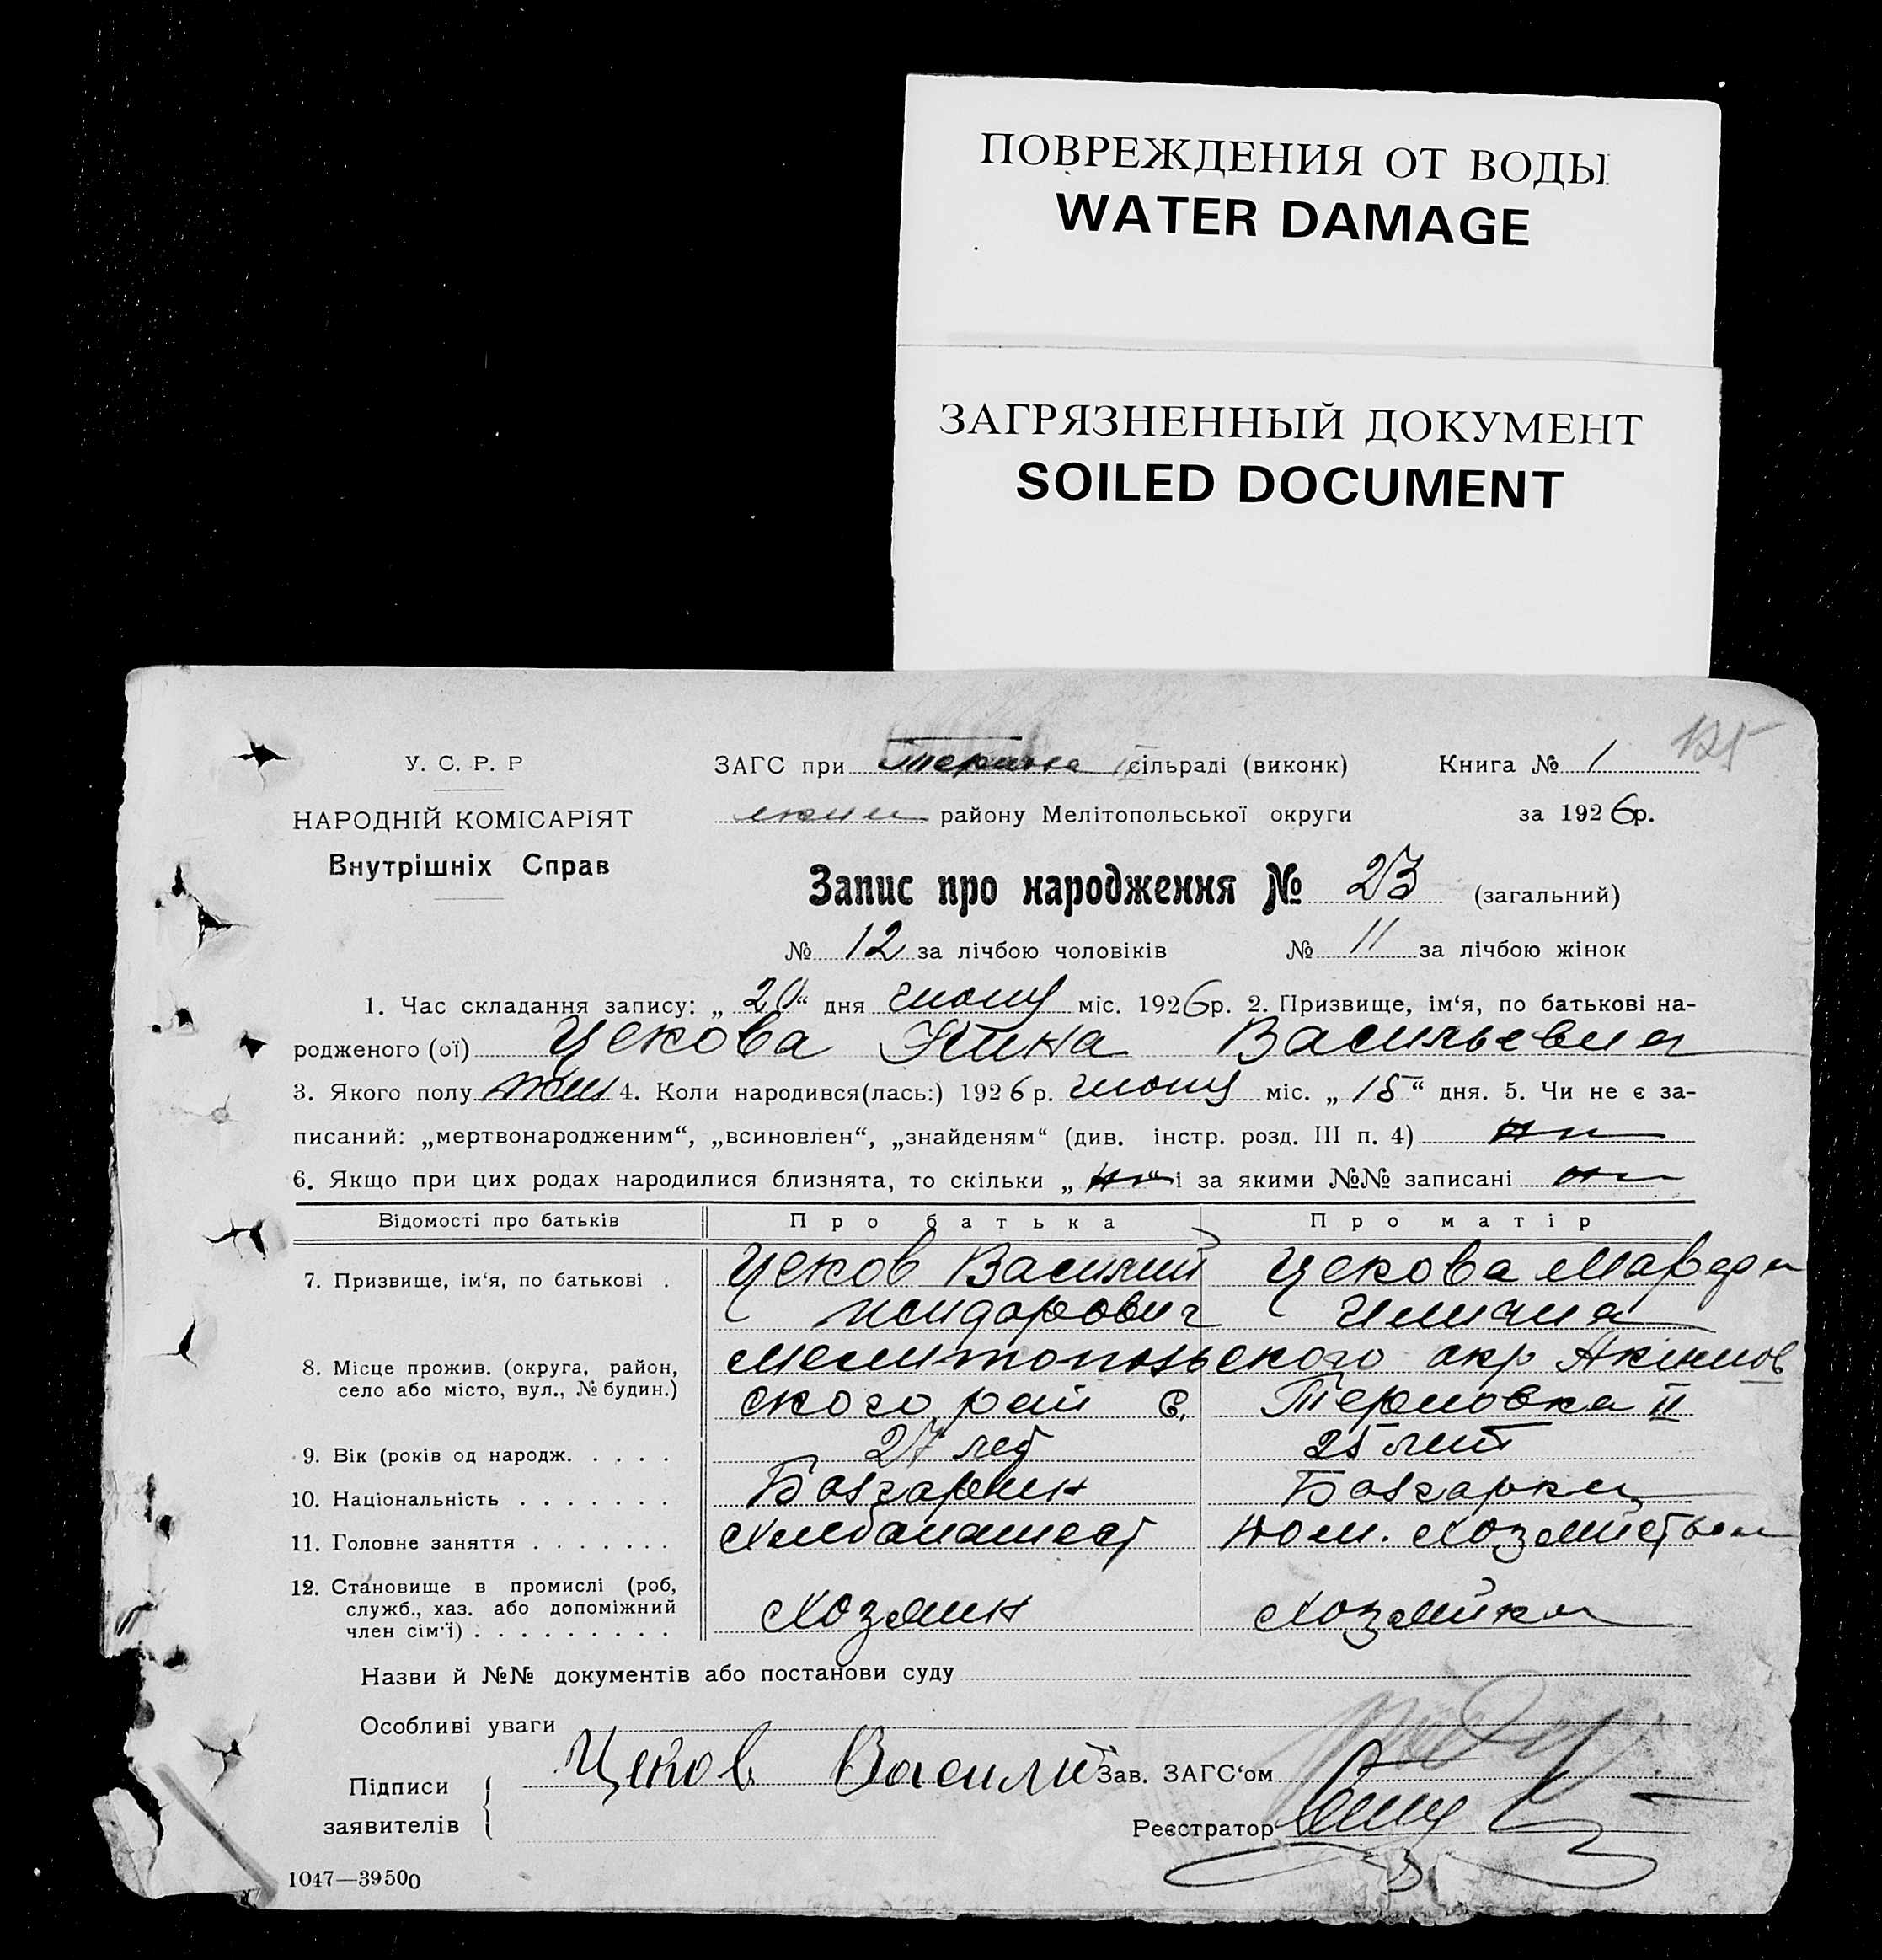 ПОВРЕЖДЕНИЯ ОТ ВОДЫ
WATER DAMAGE
ЗАГРЯЗНЕННЫЙ ДОКУМЕНТ
SOILED DOCUMENT
125
У. С. Р. Р
НАРОДНІЙ КОМІСАРІЯТ
Внутрішніх Справ
ЗАГС при сільраді (виконк) Книга № 1
району Мелітопольської округи за 1926р.
Запис про народження № 23 (загальний)
№ 12 за лічбою чоловіків № 11 за лічбою жінок
1. Час складання запису: „ 20 “ дня міс. 1926р. 2. Призвище, ім‘я, по батькові на-
родженого (ої) Цекова Васильевна
3. Якого полу жен 4. Коли народився(лась:) 1926 р. міс. „ 15 “ дня. 5. Чи не є за-
писаний: „мертвонародженим“, „всиновлен“, „знайденям“ (див. інстр. розд. III п. 4)
6. Якщо при цих родах народилися близнята, то скільки „ “ і за якими №№ записані
Відомості про батьків Про батька Про матір
7. Призвище, ім‘я, по батькові . Цеков Василий Цекова
8. Місце прожив. (округа, район, Мелитопольского окр Акимов
село або місто, вул., № будин.) ского рай с. Терновка II
9. Вік (років од народж. . . . . 27 лет 25 лет
10. Національність . . . . . . . Болгарин Болгарка
11. Головне заняття . . . . . . . Хлебопашест Дом. хозяйством
12. Становище в промислі (роб,
служб., хаз. або допоміжний Хозяин Хозяйка
член сім‘ї) . . . . . . . . .
Назви й №№ документів або постанови суду
Особливі уваги
Підписи Цеков Василий Зав. ЗАГС‘ом
заявителів Реєстратор
1047—39500